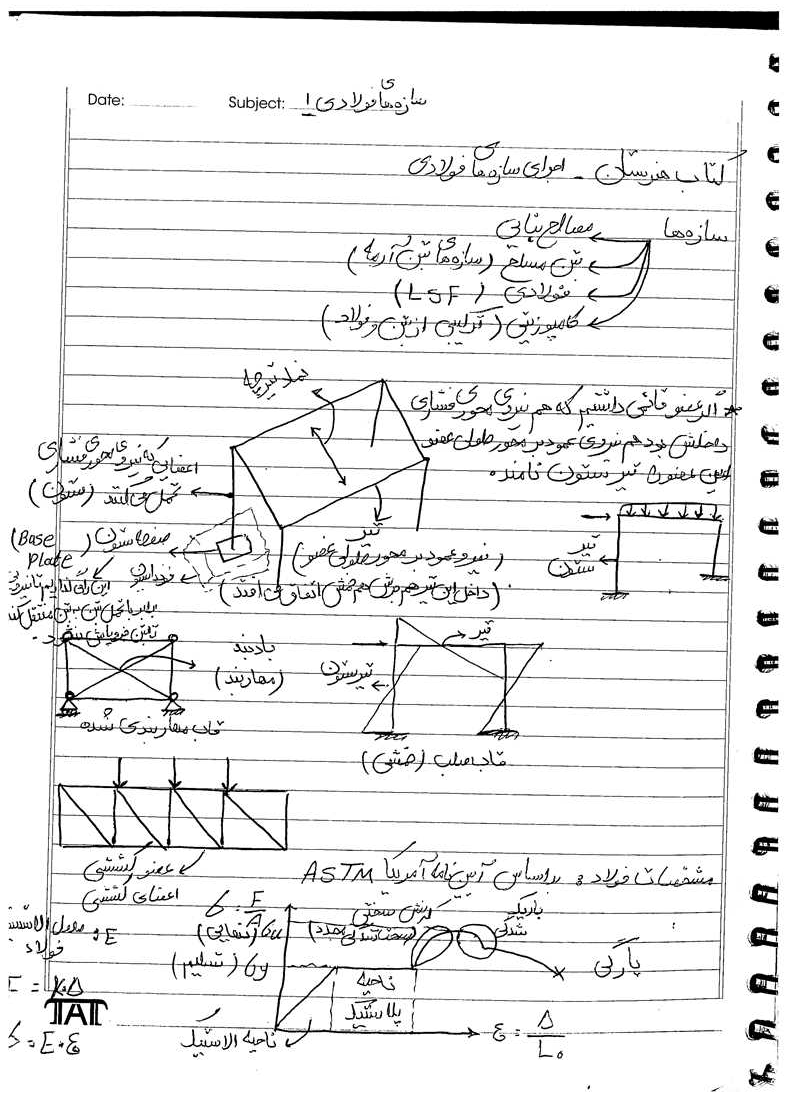 Date:
Subject: سازه‌های فولادی 1
کتاب هنرستان - اجرای سازه‌های فولادی
سازه‌ها
مصالح بنایی
بتن مسلح (سازه‌های بتن آرمه)
فولادی (LSF)
کامپوزیتی (ترکیبی از بتن و فولاد)
نماد تیرچه
* اگر عضو قائمی داشتیم که هم نیروی محوری فشاری
داخلش بود هم نیروی عمود بر محور طولی عضو
این عضو را تیر ستون نامند.
اعضایی که نیروی محوری فشاری
تحمل می‌کنند (ستون)
تیر
(نیرو عمود بر محور طولی عضو)
(داخل این تیر هم برش هم خمش اتفاق می‌افتد)
صفحه ستون (Base
plate
فونداسیون
این را می‌گذاریم تا نیروی
منتقل کند
تا بتن فروپاش نشود.
تیر
ستون
بادبند
(مهاربند)
قاب مهاربندی شده
تیر
تیرستون
قاب صلب (خمشی)
عضو کششی
اعضای کششی
مشخصات فولاد: براساس آیین نامه آمریکا ASTM
б = F/A
бu (نهایی)
бy (تسلیم)
کرنش سختی
(سخت شدگی مجدد)
باریک
شدگی
پارگی
ناحیه
پلاستیک
ناحیه الاستیک
ε = Δ/L₀
E: مدول الاستیسیته
فولاد
= E.ε